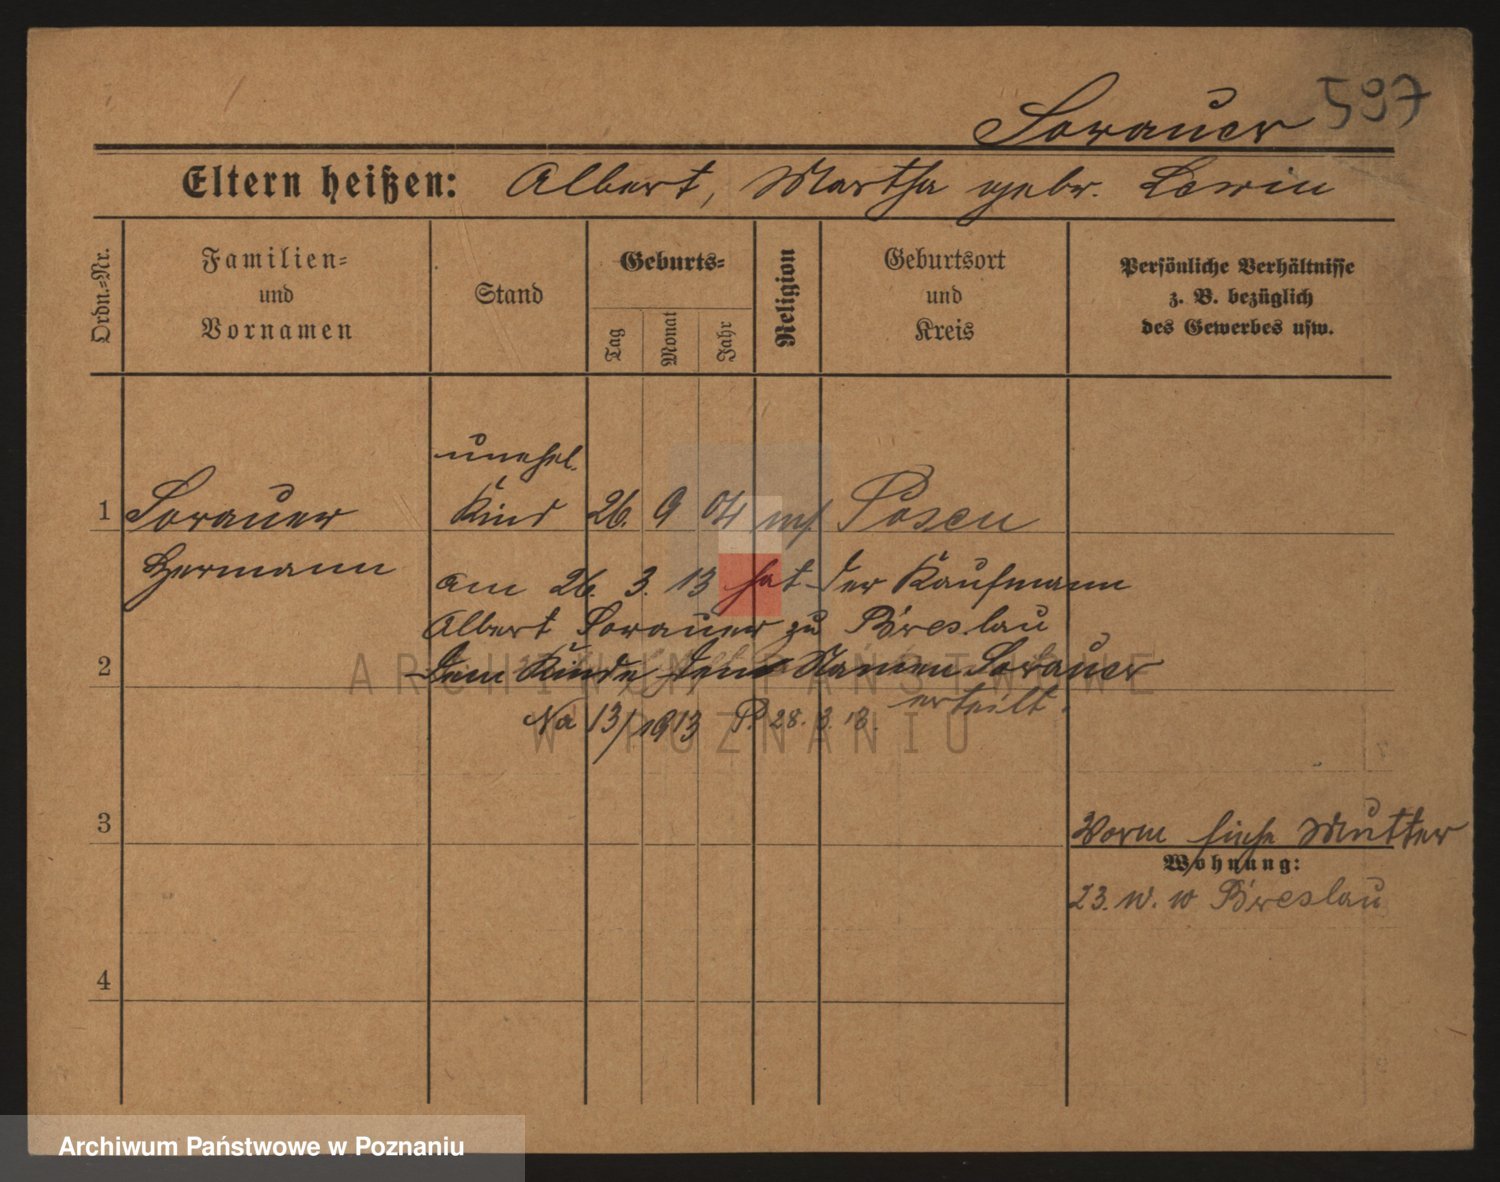 Sorauer 597
Eltern heißen: Albert, Martha gebr. Lewin
Ordn.-Nr.
Familien-
und
Vornamen
Stand
Geburts-
Tag
Monat
Jahr
Religion
Geburtsort
und
Kreis
Persönliche Verhältnisse
z. B. bezüglich
des Gewerbes usw.
unehel.
1 Sorauer Kind 26. 9 04 Posen
Hermann
am 26. 3. 13 hat der Kaufmann
Albert Sorauer zu Breslau
2 dem Kinde den Namen Sorauer
erteilt.
Na 13/1913 P. 28. 3. 13.
3
Vorm siehe Mutter
Wohnung:
23. Breslau
4
ARCHIWUM PAŃSTWOWE
W POZNANIU
Archiwum Państwowe w Poznaniu